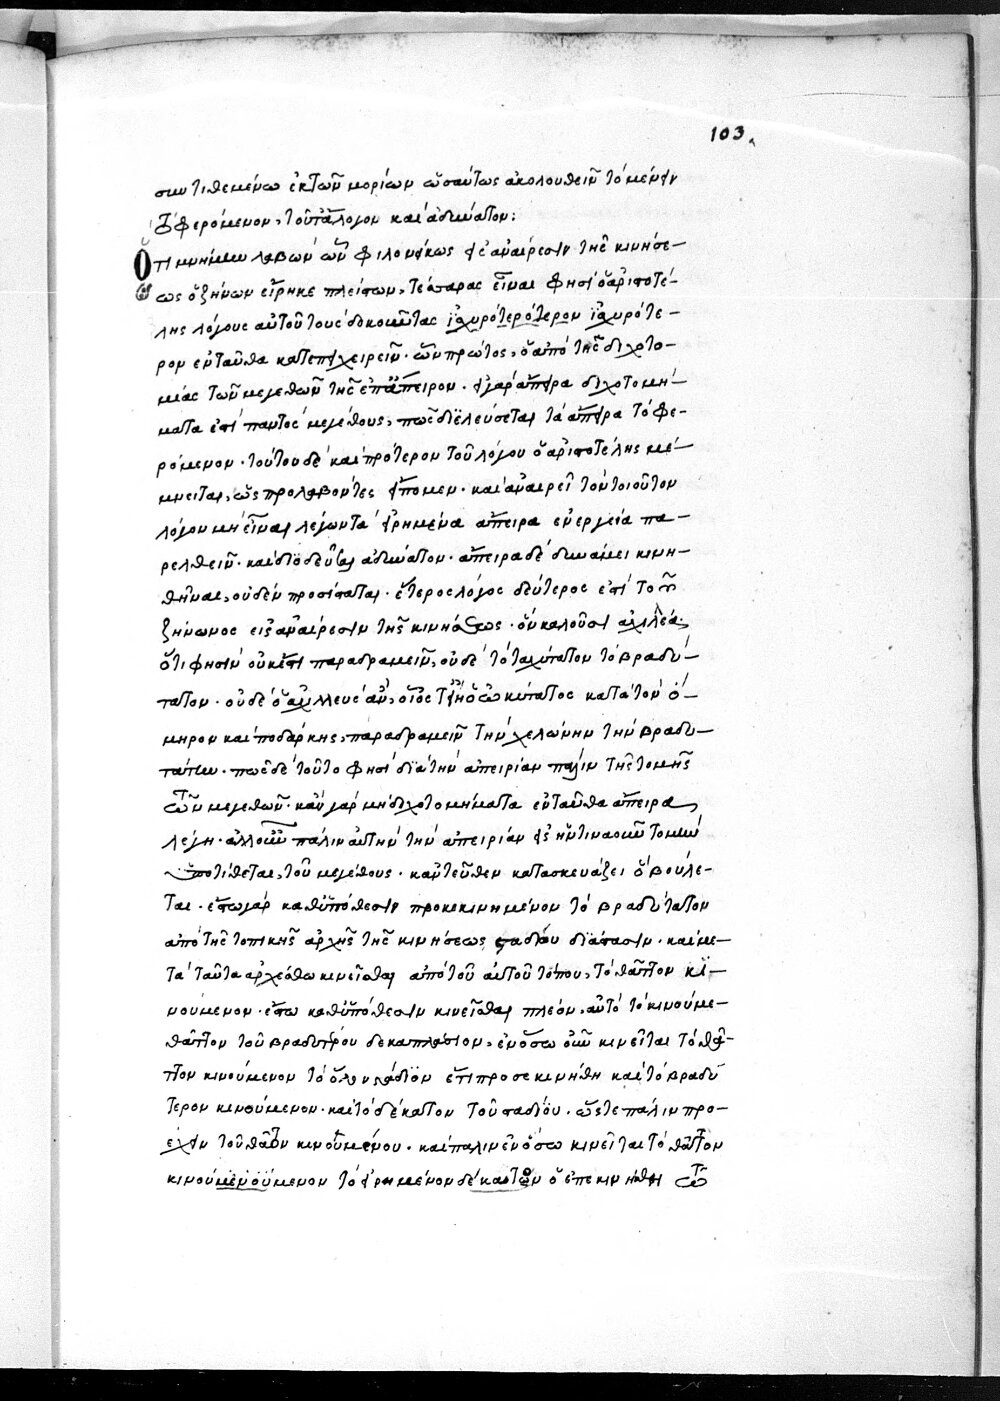 103
συντιθεμένω ἐκ τῶν μορίων ὡσαύτως ἀκολουθεῖν τὸ μένειν
τὸ φερόμενον, τοῦτ' ἄλογον καὶ ἀδύνατον:
Ὅτι μνήμην λαβὼν ὧν φιλονείκως εἰς ἀναίρεσιν τῆς κινήσε-
ως ὁ ζήνων εἴρηκε πλείστων, τέσσαρας εἶναι φησὶ ὁ ἀριστοτέ-
λης λόγους αὐτοῦ τοὺς δοκοῦντας ἰσχυρότερότερον ἰσχυρότε-
ρον ἐνταῦθα κατεπιχειρεῖν. ὧν πρῶτος, ὁ ἀπὸ τῆς διχοτο-
μίας τῶν μεγεθῶν τῆς ἐπ' ἄπειρον. εἰ γὰρ ἄπειρα διχοτομή-
ματα ἐπὶ παντὸς μεγέθους, πῶς διελεύσεται τὰ ἄπειρα τὸ φε-
ρόμενον. τούτου δὲ καὶ πρότερον τοῦ λόγου ὁ ἀριστοτέλης μέ-
μνειται, ὡς προλαβόντες εἴπομεν. καὶ ἀναιρεῖ τὸν τοιοῦτον
λόγον μὴ εἶναι λέγων τὰ εἰρημένα ἄπειρα ἐνεργεία πα-
ρελθεῖν. καὶ διοδεῦσαι ἀδύνατον. ἄπειρα δὲ δυνάμει κινη-
θῆναι, οὐδὲν προσίσταται. ἕτερος λόγος δεύτερος ἐπὶ τοῦ
ζήνωνος εἰς ἀναίρεσιν τῆς κινήσεως. ὃν καλοῦσι ἀχιλλέα.
ὅτι φησὶν οὐκ ἔστι παραδραμεῖν, οὐδὲ τὸ ταχύτατον τὸ βραδύ-
τατον. οὐδὲ ὁ ἀχιλλεὺς ἂν, οἷος ἦν ὁ ὠκύτατος κατὰ τὸν ὅ-
μηρον καὶ ποδάρκης, παραδραμεῖν τὴν χελώνην τὴν βραδυ-
τάτην. πῶς δὲ τοῦτο φησὶ διὰ τὴν ἀπειρίαν πάλιν τῆς τομῆς
τῶν μεγεθῶν. κἂν γὰρ μὴ διχοτομήματα ἐνταῦθα ἄπειρα
λέγῃ. ἀλλ' οὖν πάλιν αὐτὴν τὴν ἀπειρίαν εἰς ἥντιναοῦν τομὴν
ὑποτίθεται, τοῦ μεγέθους. κἀντεῦθεν κατασκευάζει ὃ βούλε-
ται. ἔστω γὰρ καθ' ὑπόθεσιν προκεκινημένον τὸ βραδύτατον
ἀπὸ τῆς τοπικῆς ἀρχῆς τῆς κινήσεως σταδίου διάστασιν. καὶ με-
τὰ ταῦτα ἀρχέσθω κινεῖσθαι ἀπὸ τοῦ αὐτοῦ τόπου, τὸ θᾶττον κι-
νούμενον. ἔστω καθ' ὑπόθεσιν κινεῖσθαι πλέον, αὐτὸ τὸ κινούμε-
θᾶττον τοῦ βραδυτέρου δεκαπλάσιον, ἐν ὅσω οὖν κινεῖται τὸ θᾶτ-
τον κινούμενον τὸ ὅλον στάδιον ἔτι προσεκινήθη καὶ τὸ βραδύ
τερον κινούμενον. καὶ τὸ δέκατον τοῦ σταδίου. ὥστε πάλιν προ-
έχειν τοῦ θᾶττον κινουμένου. καὶ πάλιν ἐν ὅσω κινεῖται τὸ θᾶττον
κινούμενούμενον τὸ εἰρημένον δέκατον ὃ ἐπεκινήθη τῶ